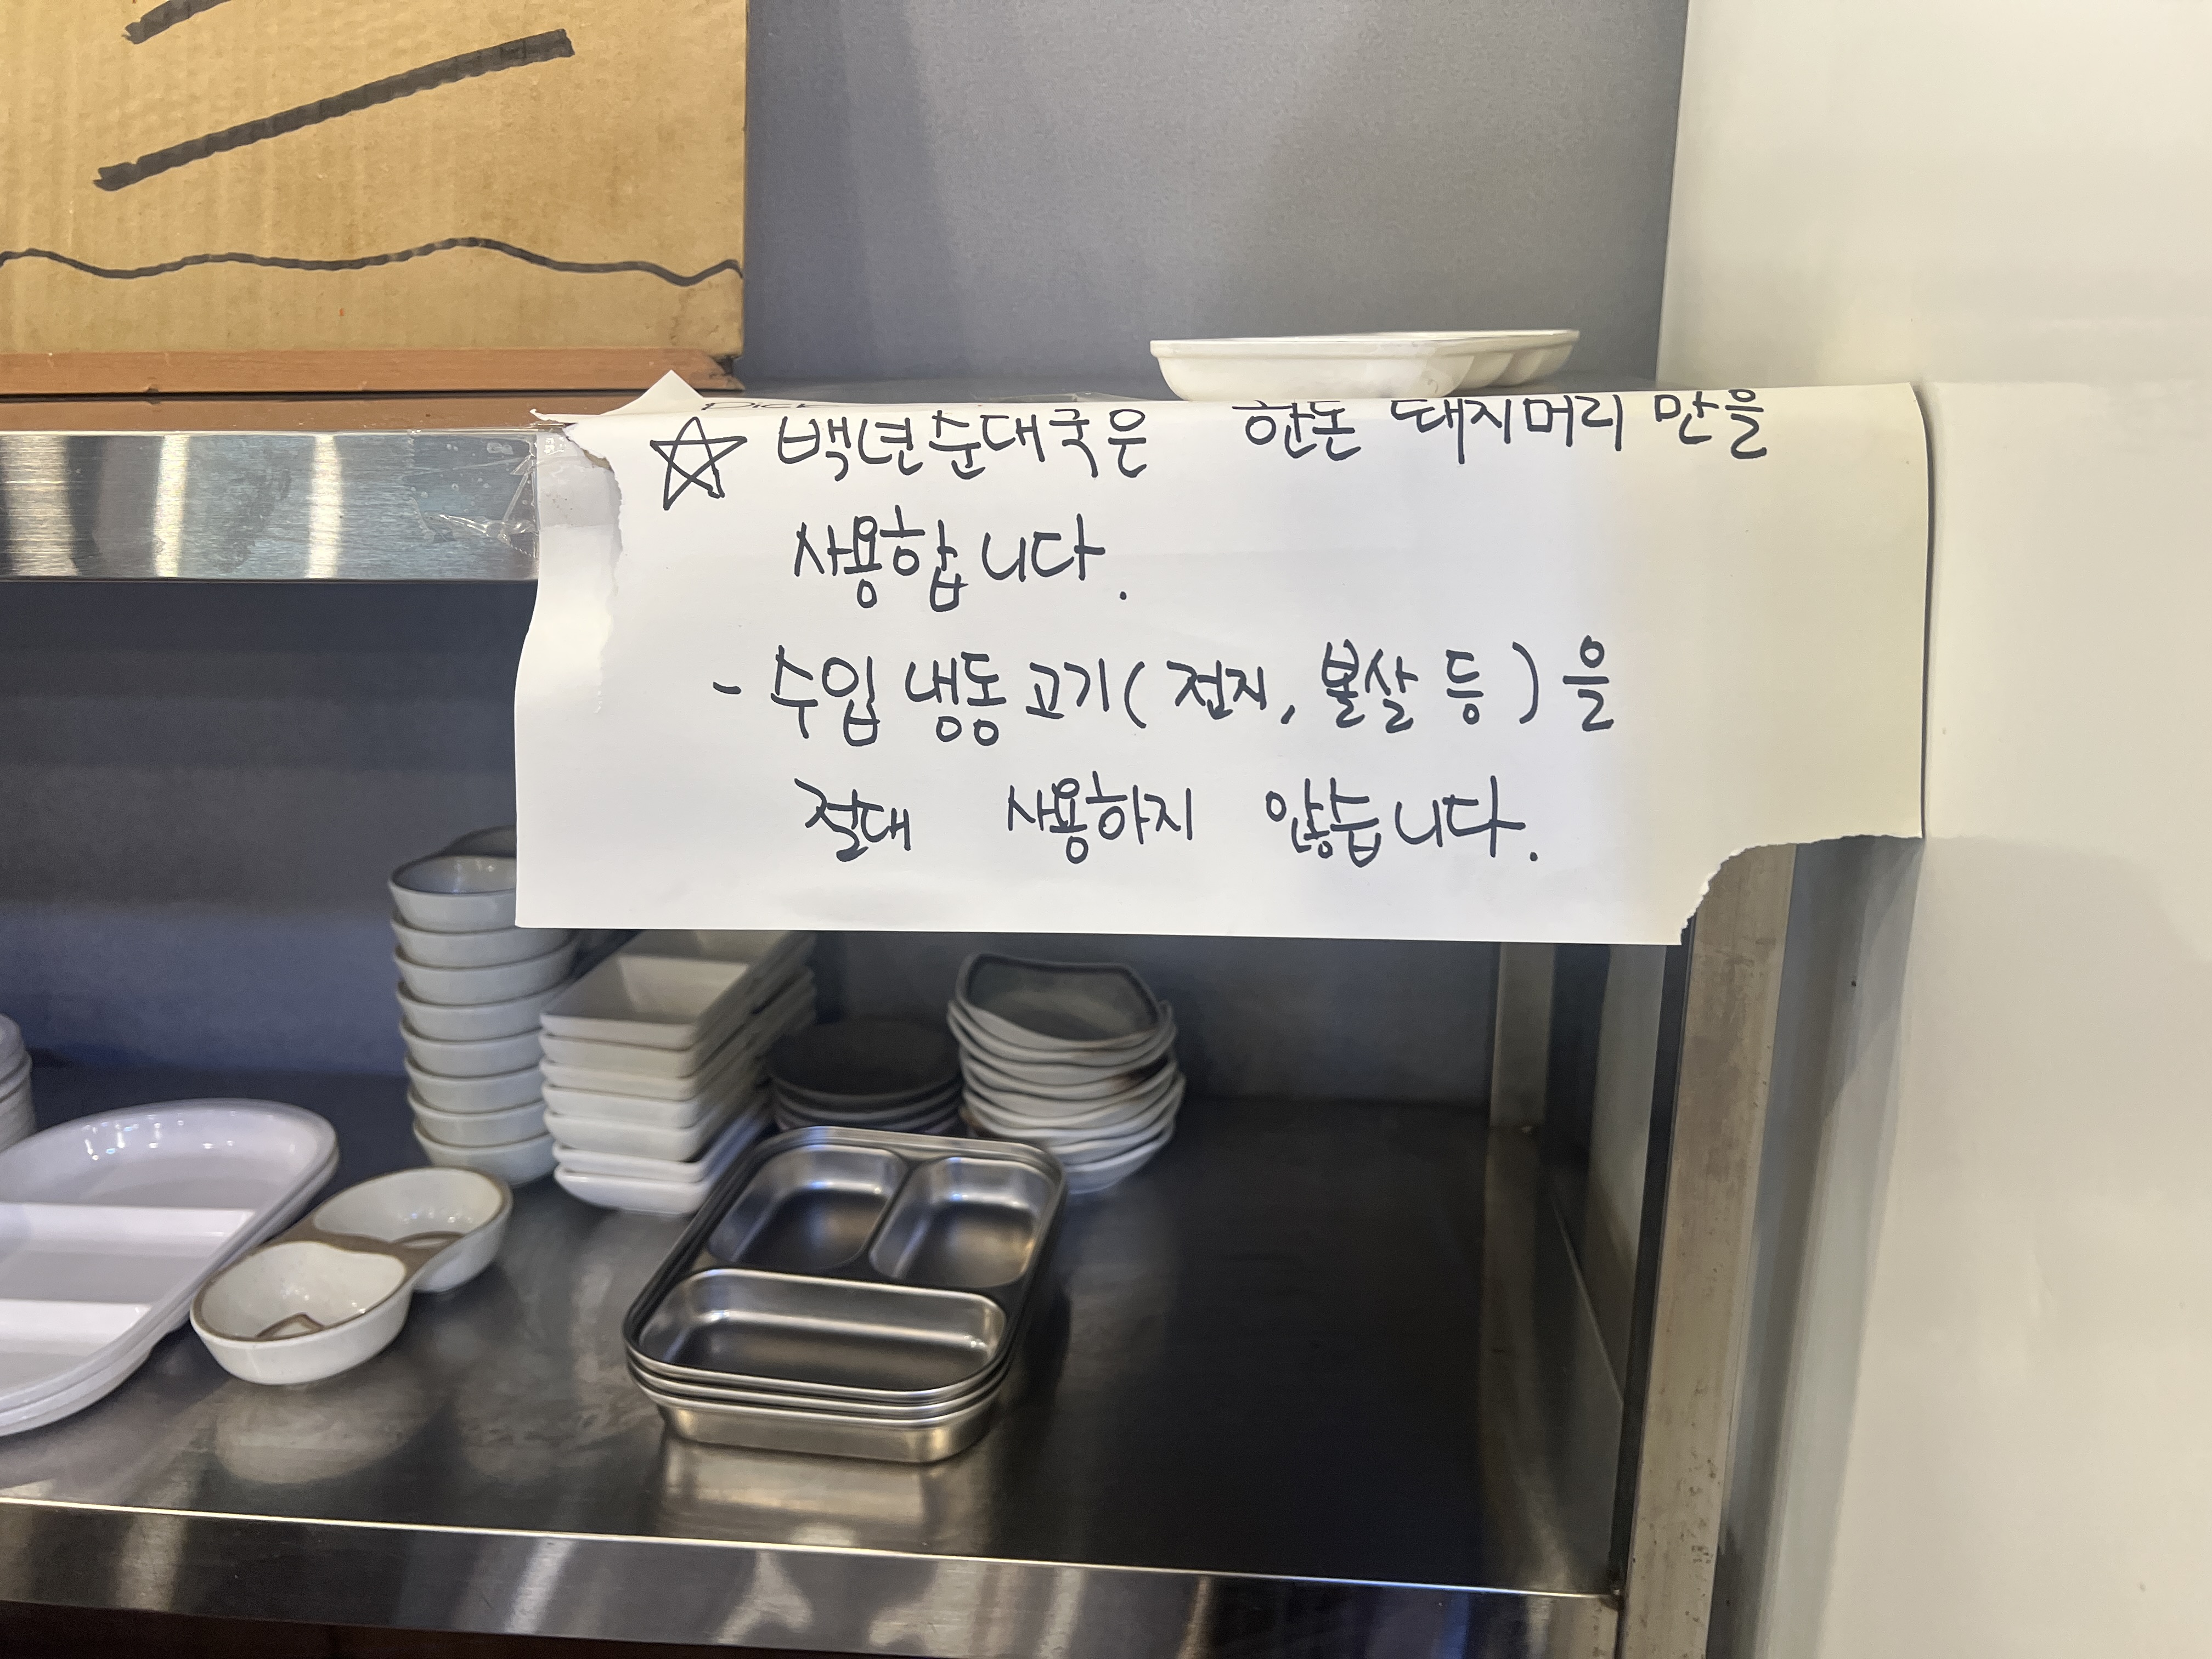 ☆ 백년순대국은 한돈 돼지머리 만을
사용합니다.
- 수입 냉동고기(전지, 볼살 등)을
절대 사용하지 않습니다.